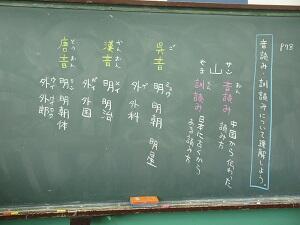 P98
音読み・訓読みについて理解しよう。
山
サン 音読み 中国から伝わった読み方
やま 訓読み 日本に古くからある読み方
呉音 ご
明 ミョウ 明朝 明星
外 ゲ 外科
漢音 かんおん
明 メイ 明治
外 ガイ 外国
唐音 とうおん
明 ミン 明朝体
外 ウイ 外郎